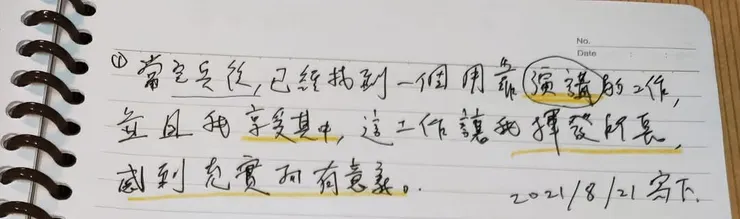 No.
Date
① 當完兵後,已經找到一個用靠演講的工作,
並且我享受其中,這工作讓我揮發所長,
感到充實和有意義。
2021/8/21 寫下.